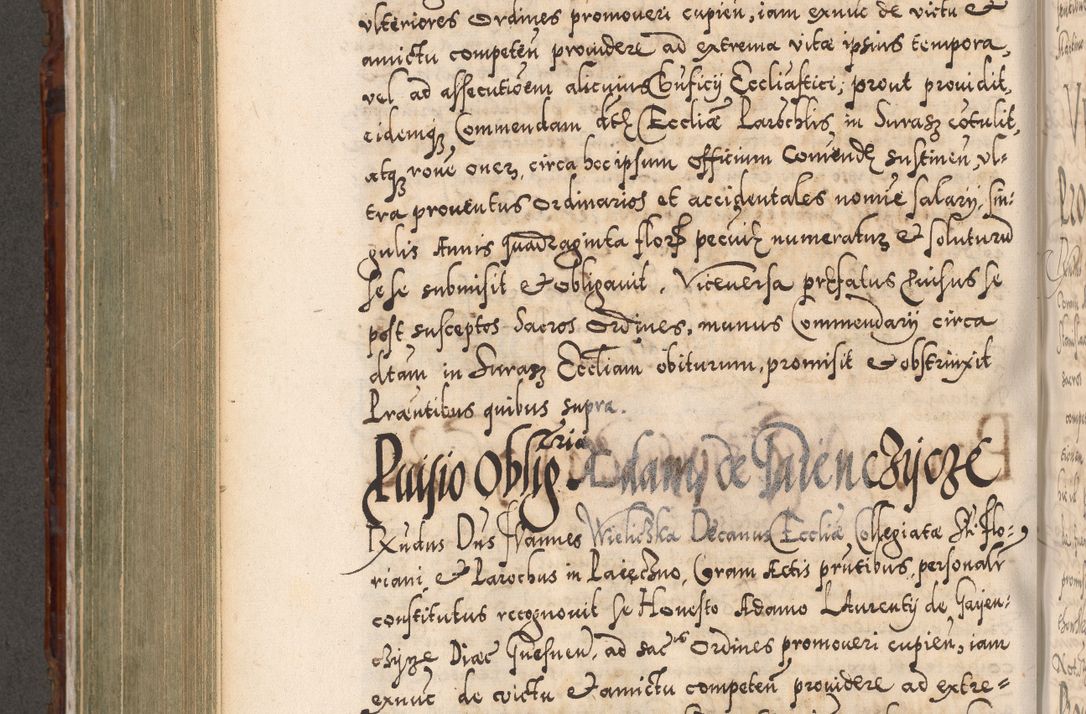 ulteriores Ordines promoueri cupien, iam exnuc de victu et
amictu competen prouidere ad extrema vitæ ipsius tempora,
vel ad assecutiorem alicuius Bnficij Eccliastici; prout prouidit,
eidemq; Commendam dctæ Eccliæ Parochlis in Surasz cotulit,
atq; roue oner, circa hoc ipsum officium Comend sustinen, ul=
tra prouentus ordinarios et accidentales nomie salarij, sin=
gulis Annis quadraginta flor pecun numeratur et soluturu
sese submisit et obligauit. Viceuersa præfatus Puisus se
post susceptos Sacros Ordines, munus Commendarij circa
datam in Surasz Eccliam obiturum, promisit et obstrinxit
Præntibus quibus supra.
Puisio Oblig:toria Adami de Gaien czijcze
Rxndus Dns Joannes Wieliczka Decanus Eccliæ Collegiatæ St: Flo=
riani, et Parochus in Paięczno, Coram Actis prntibus personalr
constitutus recognouit se Honesto Adamo Laurentij de Gaijen=
czijcze Diæc Gnesnen, ad sac Ordines promoueri cupien, iam
exnuc de victu et amictu competen prouidere ad extre=